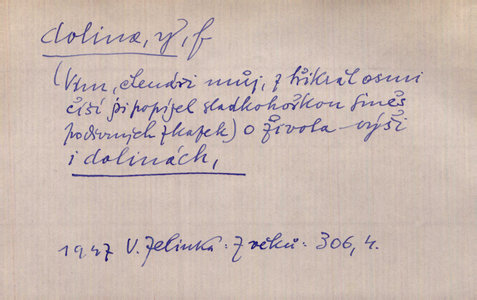 dolina, y, f
(Vím, čtenáři můj, z třikrát osmi
číší jsi popíjel sladkohořkou směs
podivných zkazek) o života výši
i dolinách,
1947 V. Jelínka: Z věků: 306, 4.